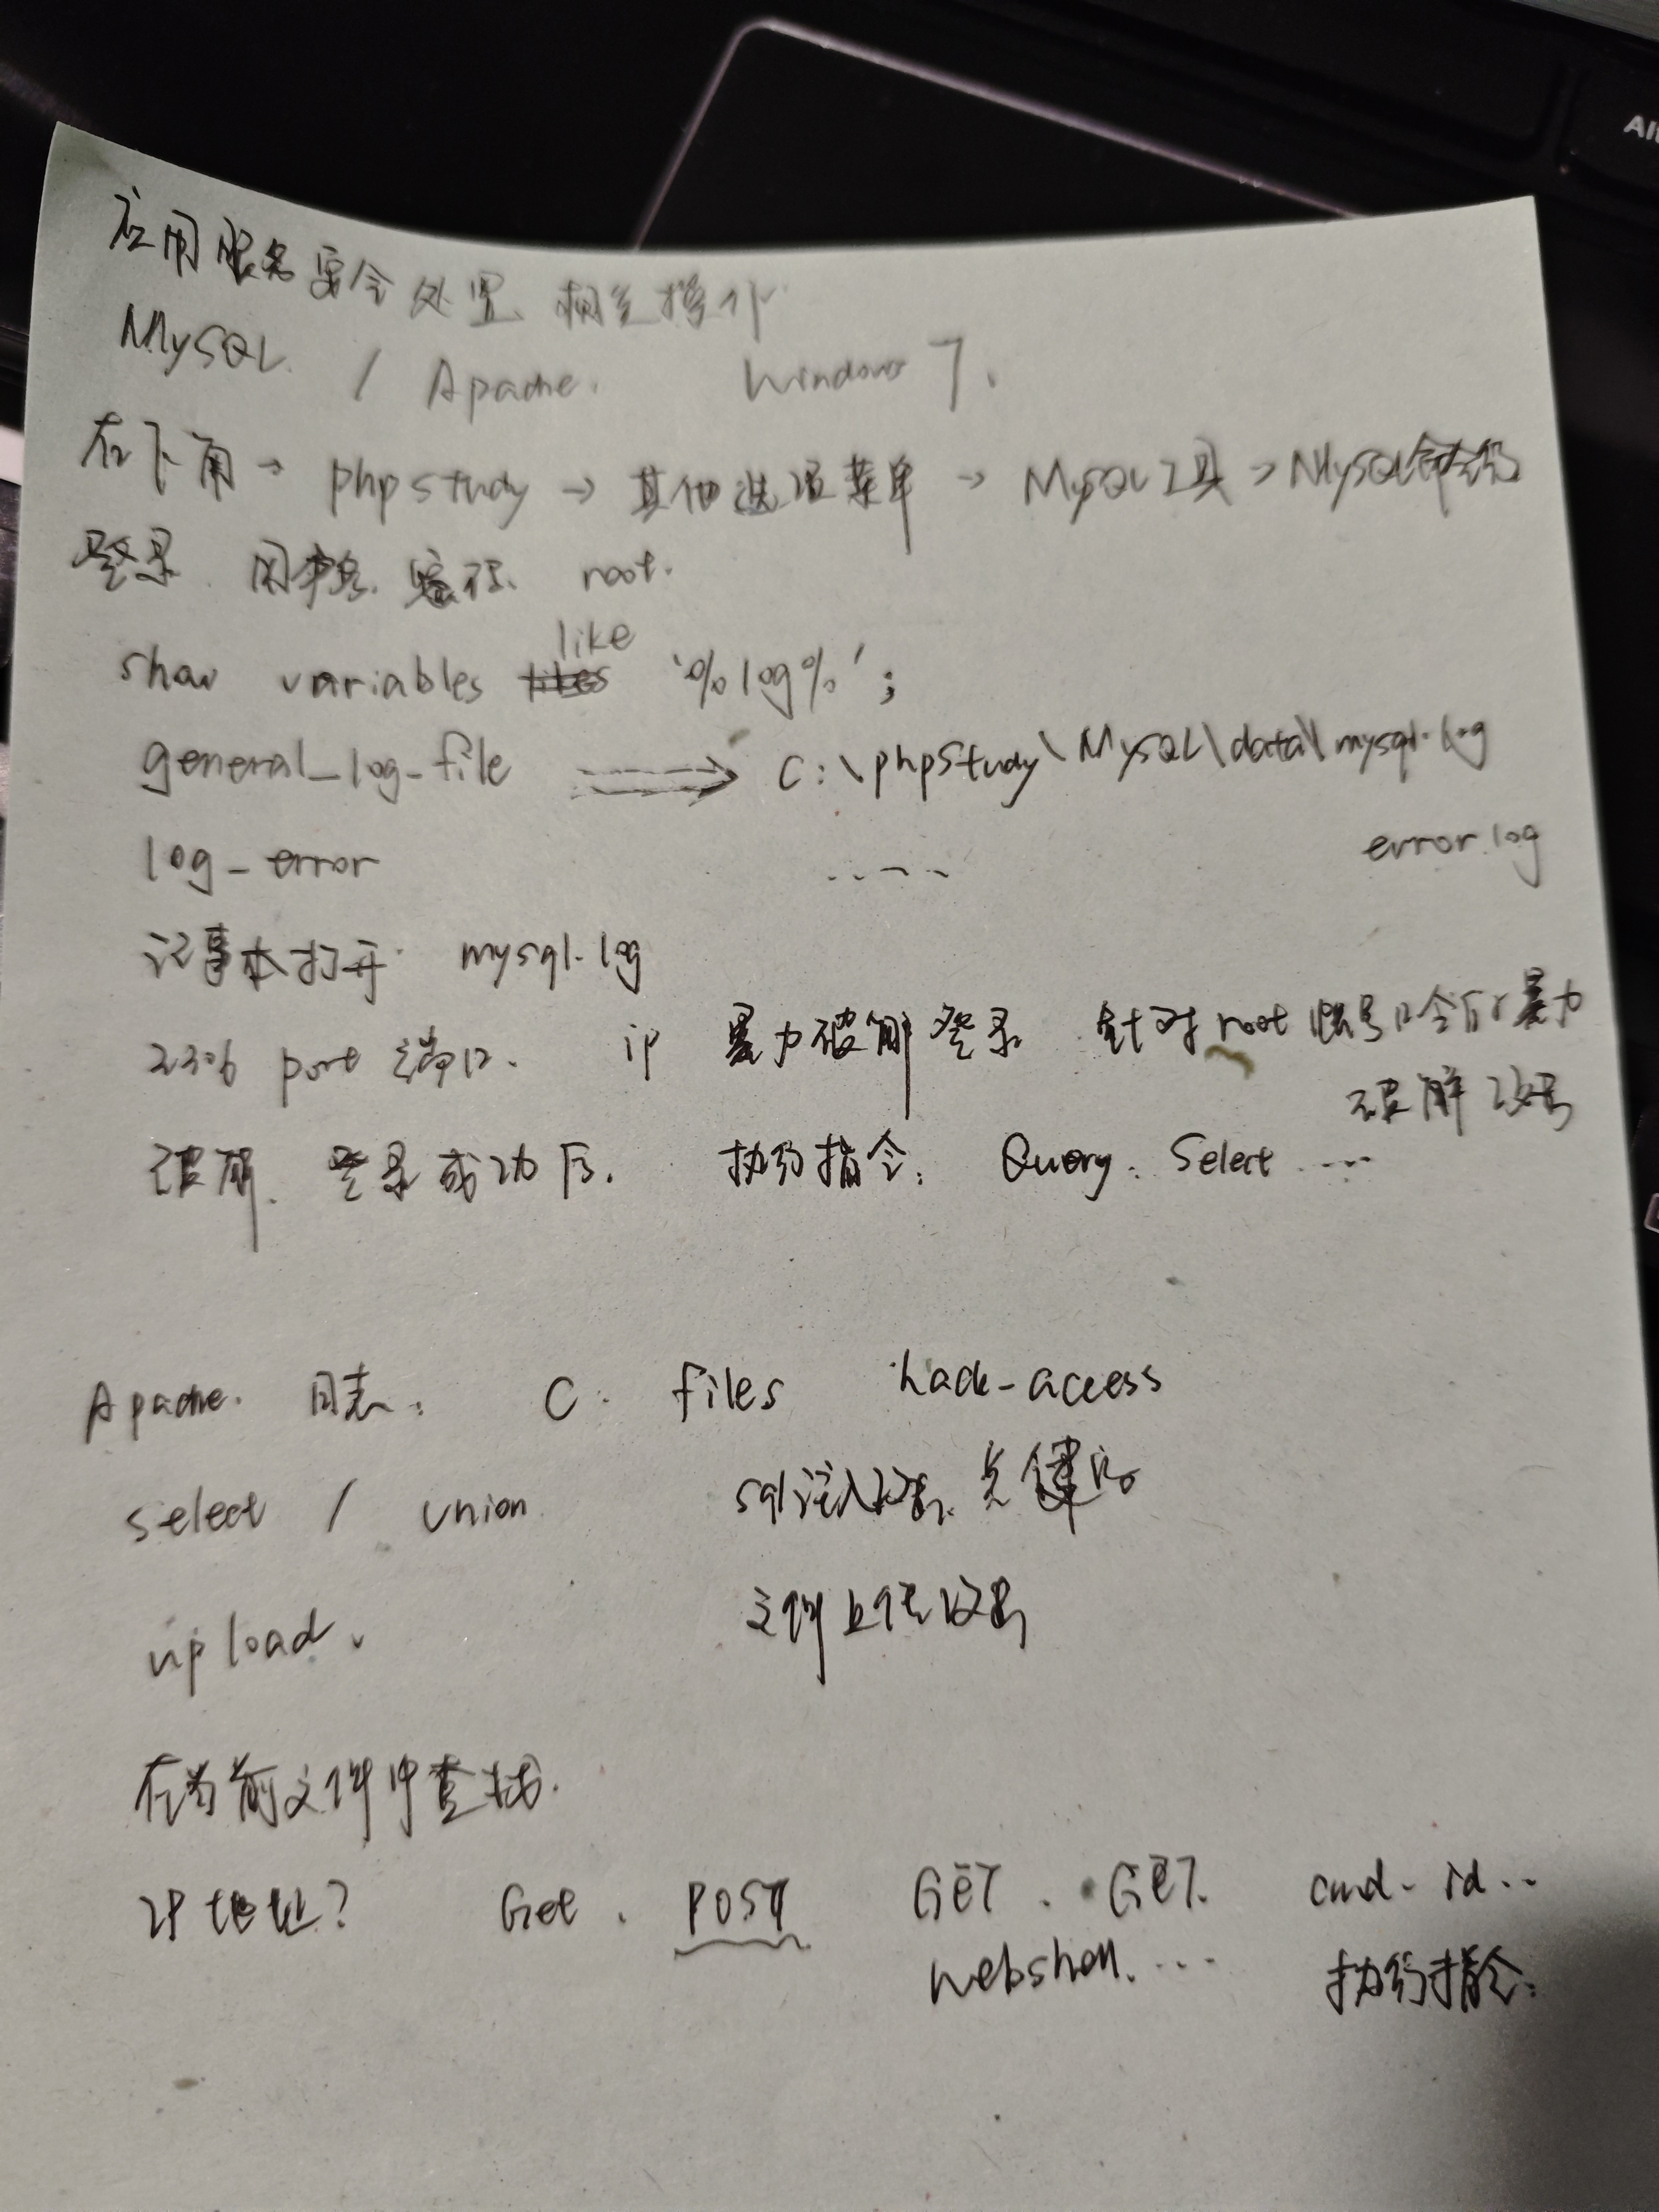 应用服务安全处置、相关操作
MySQL / Apache. Windows 7.
右下角 → phpstudy → 其他选项菜单 → MySQL工具 → MySQL命令行
登录 用户名 密码 root.
show variables like '%log%';
general_log_file ⟹ C:\phpStudy\MySQL\data\mysql.log
log_error ..... error.log
记事本打开 mysql.log
2306 port 端口. ip 暴力破解登录 针对root账号口令的暴力
破解攻击
破解. 登录成功后. 执行指令: Query. Select ....
Apache. 日志: C: files hack-access
select / union sql注入攻击.关键词
upload. 文件上传攻击
在当前文件中查找.
IP地址? Get. POST GET. GET. cmd- id..
webshell. ... 执行指令:
Alt